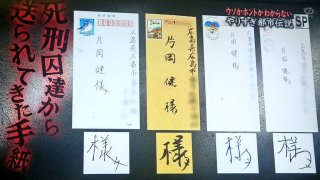 ウソかホントかわからない
やりすぎ都市伝説 SP
死刑囚達から
送られてきた手紙
片岡健様
広島県広島市
片岡健様
片岡健様
片岡健様
様
様
様
様